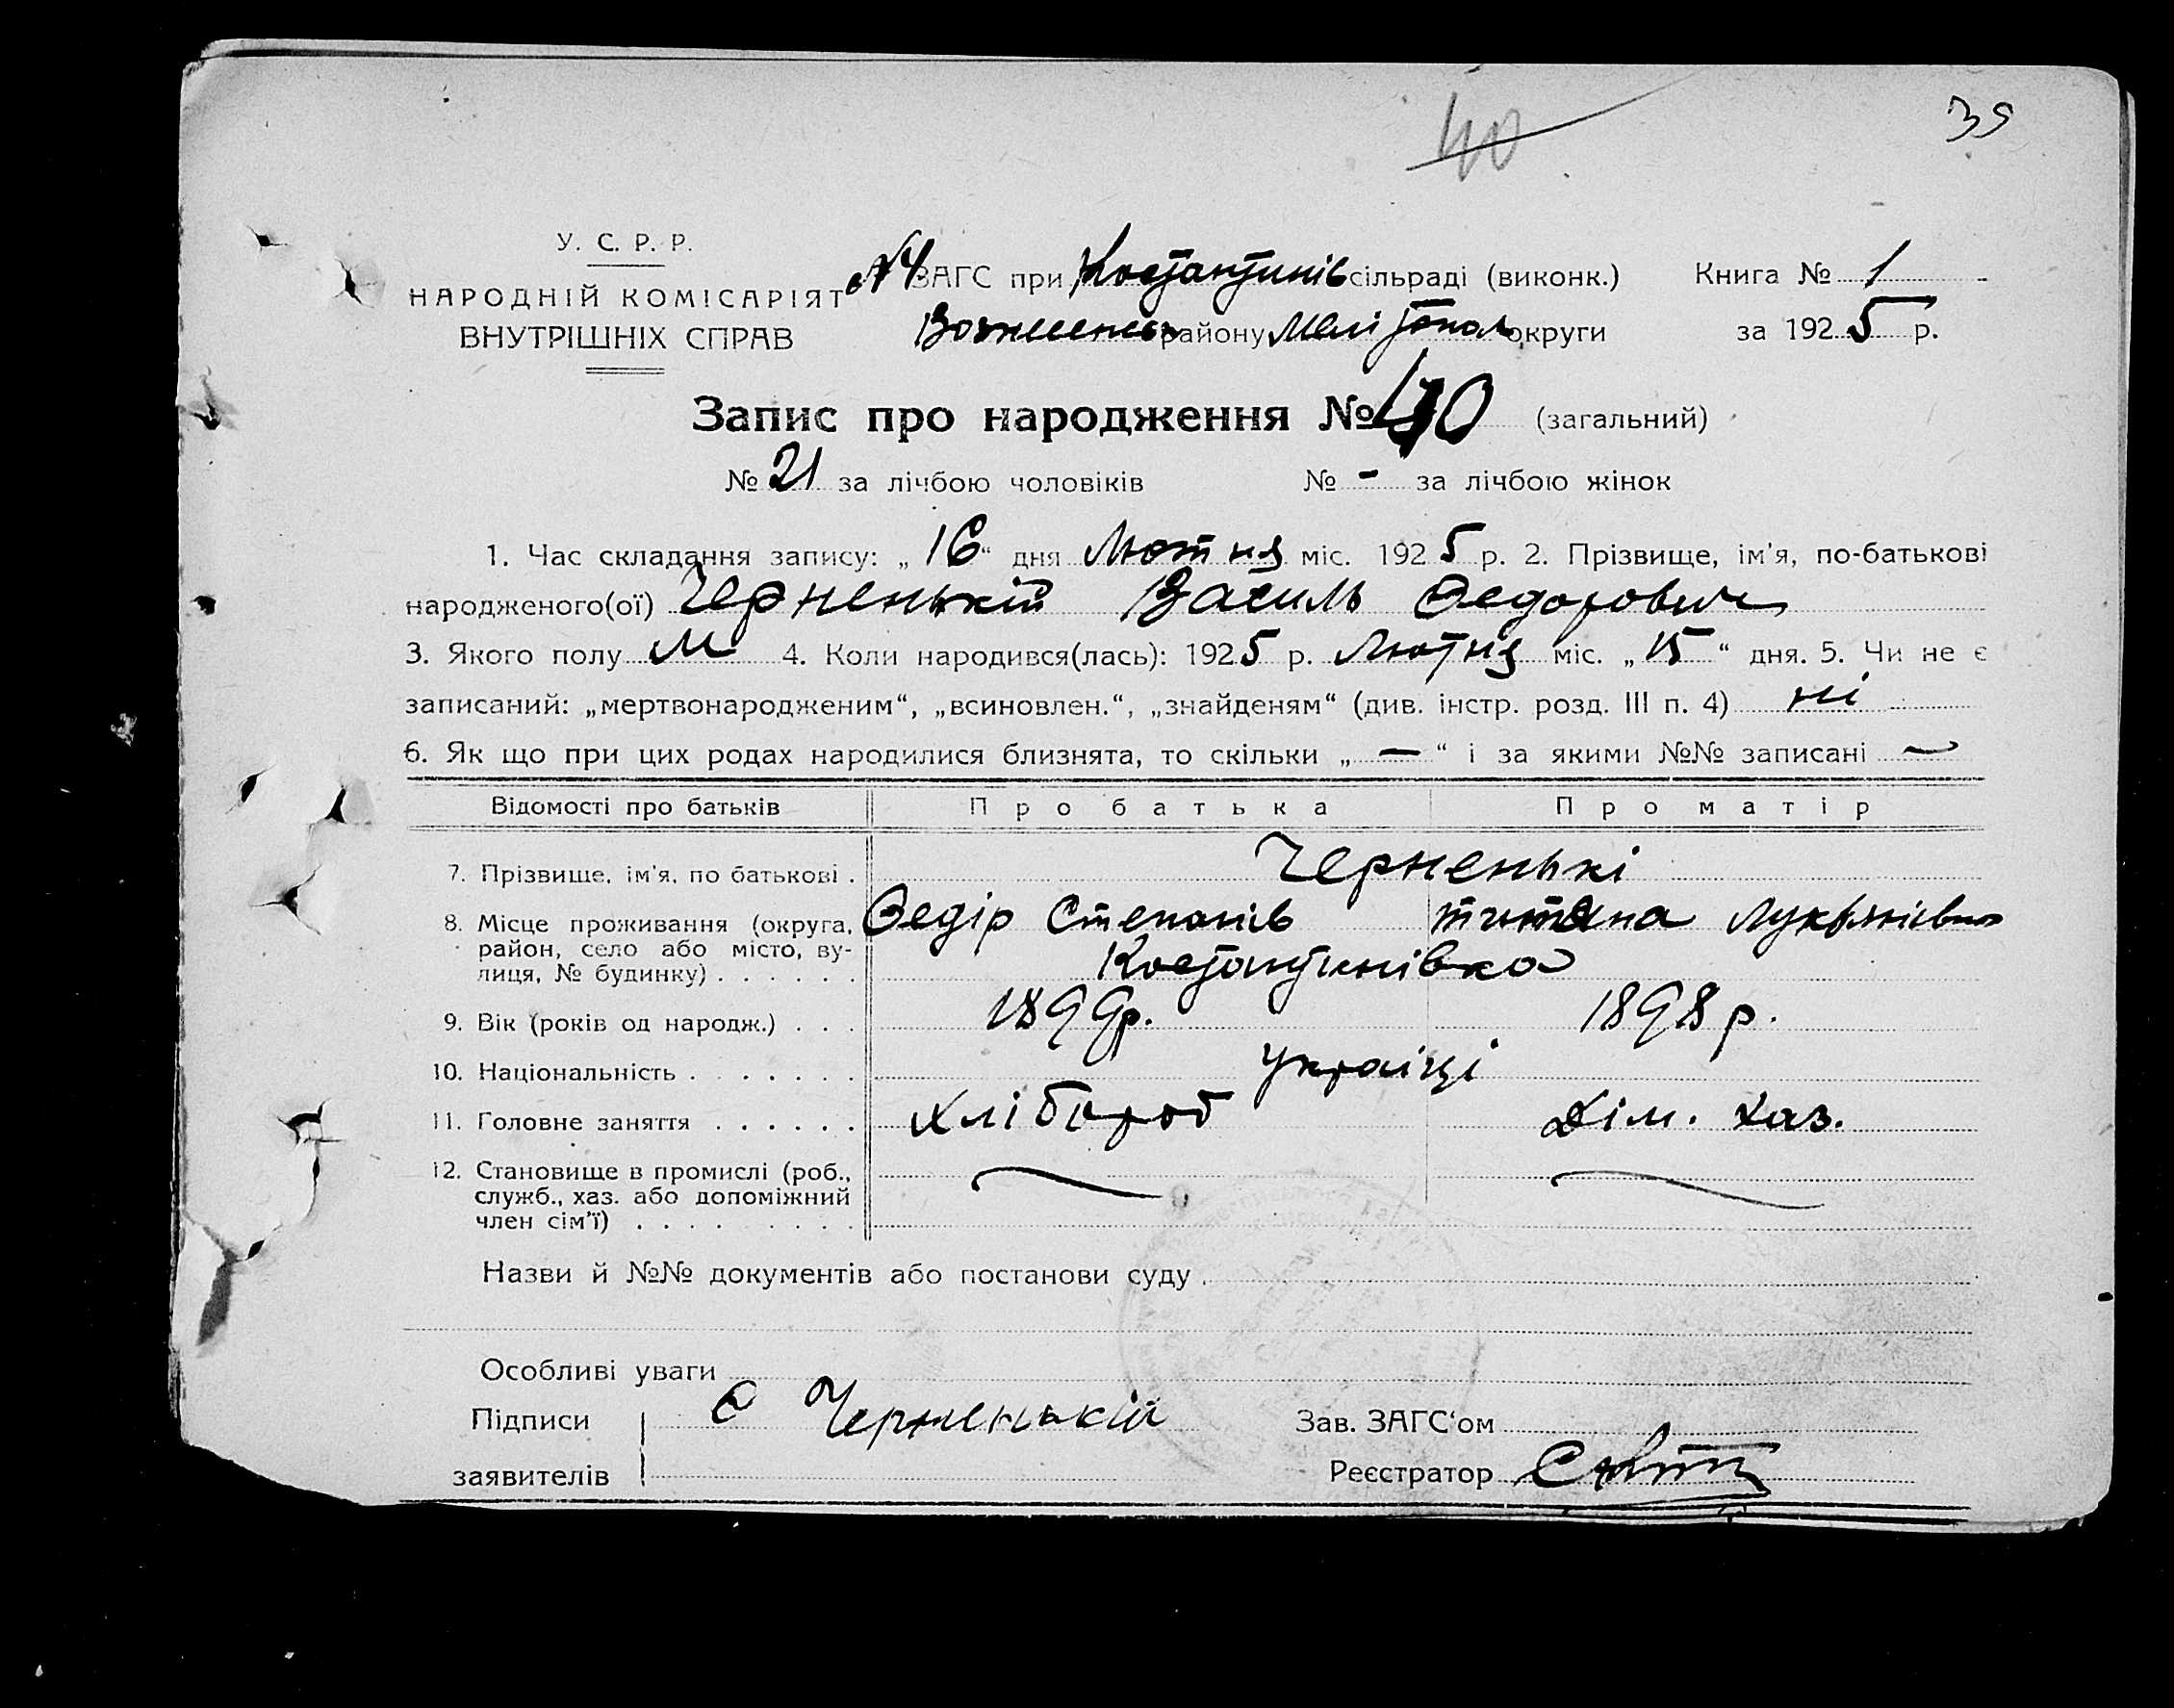 40
39
У. С. Р. Р.
НАРОДНІЙ КОМІСАРІЯТ
ВНУТРІШНІХ СПРАВ
№4 ЗАГС при Костантинів сільраді (виконк.) Книга № 1
району Меліtополь округи за 1925 р.
Запис про народження № 40 (загальний)
№ 21 за лічбою чоловіків № - за лічбою жінок
1. Час складання запису: „16“ дня Лютня міс. 1925 р. 2. Прізвище, ім'я, по-батькові
народженого(ої) Черненькій Василь Федорович
3. Якого полу М 4. Коли народився(лась): 1925 р. Лютня міс. „15“ дня. 5. Чи не є
записаний: „мертвонародженим“, „всиновлен.“, „знайденям“ (див. інстр. розд. III п. 4) ні
6. Як що при цих родах народилися близнята, то скільки „—“ і за якими №№ записані —
Відомості про батьків Про батька Про матір
7. Прізвище, ім'я, по батькові . Черненькі
8. Місце проживання (округа, Федір Степанів Титяна Лукьянівна
район, село або місто, ву-
лиця, № будинку) . . . . . . Костантинівка
9. Вік (років од народж.) . . . 1899р. 1898 р.
10. Національність . . . . . . . Українці
11. Головне заняття . . . . . . Хлібороб Дім. хаз.
12. Становище в промислі (роб.,
служб., хаз. або допоміжний
член сім'ї) . . . . . . . . .
Назви й №№ документів або постанови суду .
Особливі уваги
Підписи Черненькій Зав. ЗАГС'ом
заявителів Реєстратор